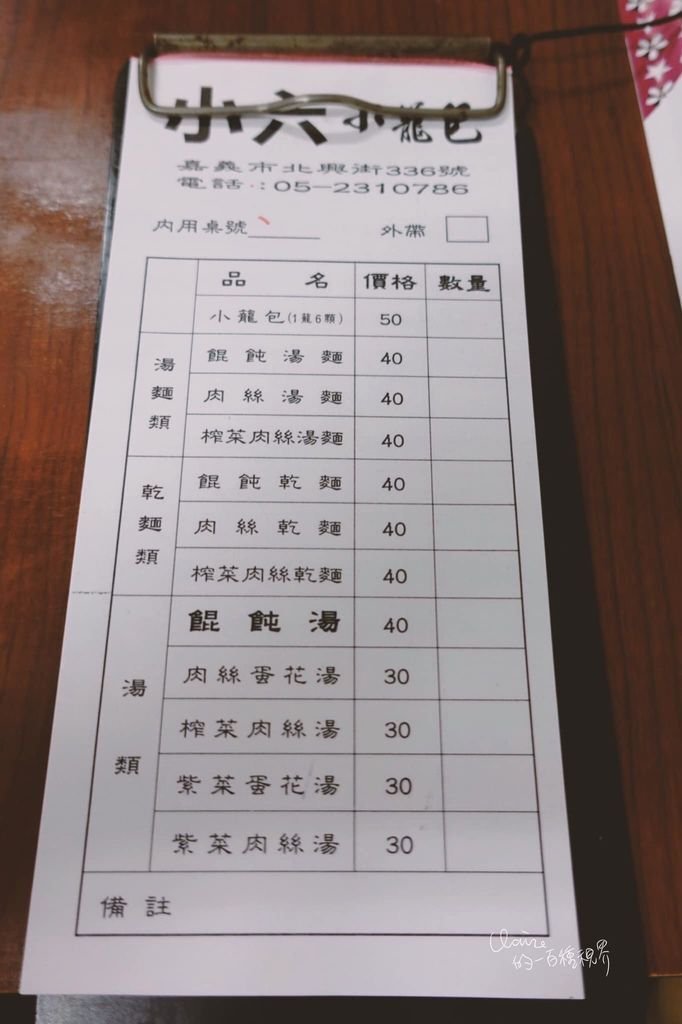 小六小龍包
嘉義市北興街336號
電話：05-2310786
內用桌號______ 外帶 □
品名 價格 數量
小龍包(1籠6顆) 50
湯麵類
餛飩湯麵 40
肉絲湯麵 40
榨菜肉絲湯麵 40
乾麵類
餛飩乾麵 40
肉絲乾麵 40
榨菜肉絲乾麵 40
湯類
餛飩湯 40
肉絲蛋花湯 30
榨菜肉絲湯 30
紫菜蛋花湯 30
紫菜肉絲湯 30
備註
Claire
的一百種視界